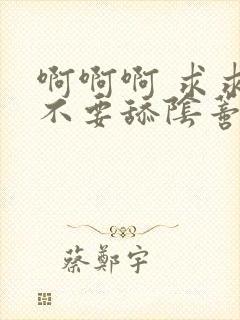 啊啊啊 求求
不要舔陰蒂
蔡鄭宇